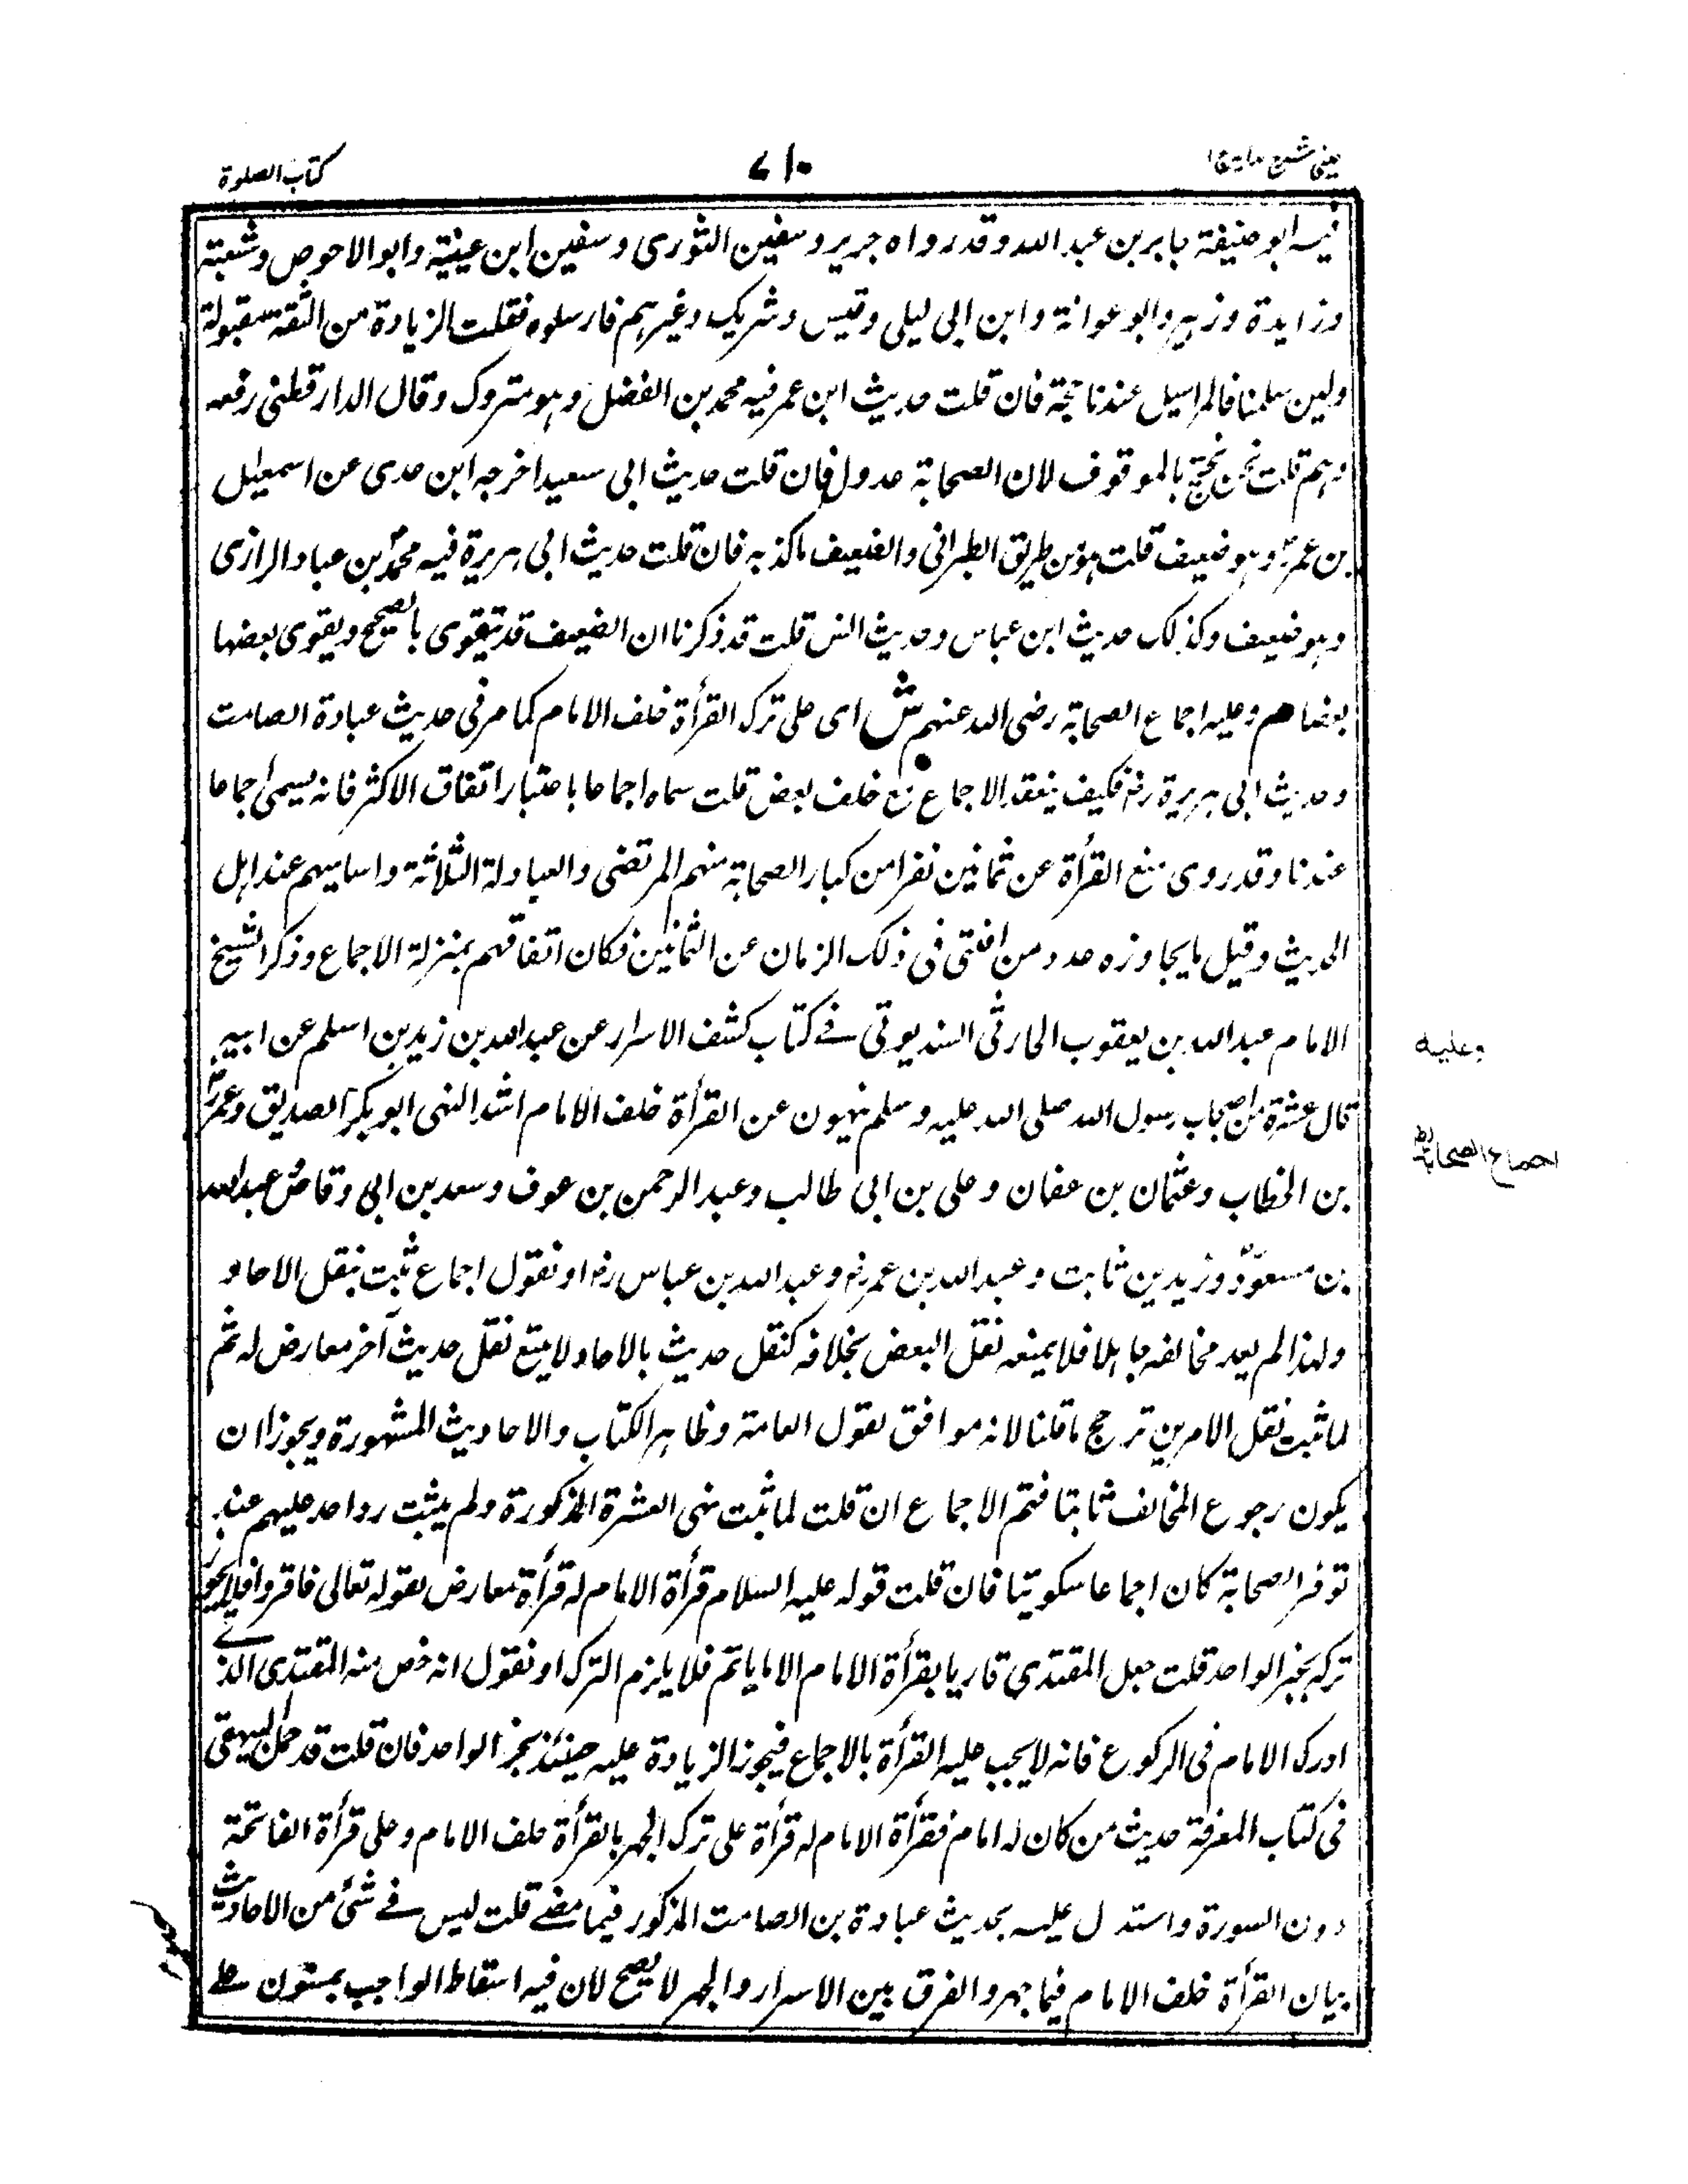 عینی شرح هدایة ١
٧١٠
کتاب الصلوة
فیه ابو حنیفة جابر بن عبد الله وقد رواه جریر وسفین الثوری وسفین ابن عینیة وابو الاحوص وشعبة
وزایدة وزہیر وابو عوانة وابن ابی لیلی وقیس وشریک وغیرہم فارسلوه فقلت الزیادة من الثقة مقبولة
ولین سلمنا فالمراسیل عندنا حجة فان قلت حدیث ابن عمر فیه محمد بن الفضل وہو متروک وقال الدارقطنی رفعه
وہم قلت نحن نحتج بالموقوف لان الصحابة عدول فان قلت حدیث ابی سعید اخرجه ابن عدی عن اسمعیل
بن عمرو وہو ضعیف قلت ہو من طریق الطبرانی والضعیف ما کذبه فان قلت حدیث ابی ہریرة فیه محمد بن عباد الرازی
وہو ضعیف وکذلک حدیث ابن عباس وحدیث انس قلت قد ذکرنا ان الضعیف قد یتقوی بالصحیح ویقوی بعضہا
بعضا هم وعلیه اجماع الصحابة رضی الله عنہم ش ای علی ترک القرأة خلف الامام کما مر فی حدیث عبادة الصامت
وحدیث ابی ہریرة رضہ فکیف ینعقد الاجماع مع خلف بعض قلت سماه اجماعا باعتبار اتفاق الاکثر فانه یسمی اجماعا
عندنا وقد روی منع القرأة عن ثمانین نفرا من کبار الصحابة منہم المرتضی والعبادلة الثلاثة واسامیہم عند اہل
الحدیث وقیل ما یجاوزه عدد من افتی فی ذلک الزمان عن الثمانین فکان اتفاقہم بمنزلة الاجماع وذکر الشیخ
الامام عبد الله بن یعقوب الحارثی السندیوتی فے کتاب کشف الاسرار عن عبد الله بن زید بن اسلم عن ابیه
وعلیه
قال عشرة من اصحاب رسول الله صلی الله علیه وسلم ینہون عن القرأة خلف الامام اشد النہی ابو بکر الصدیق وعمر
اجماع الصحابة
بن الخطاب وعثمان بن عفان وعلی بن ابی طالب وعبد الرحمن بن عوف وسعد بن ابی وقاص وعبد الله
بن مسعود وزید بن ثابت وعبد الله بن عمر رضہ وعبد الله بن عباس رضہ او نقول اجماع ثبت بنقل الاحاد
ولہذا لم یعد مخالفه جاہلا فلا یمنعه نقل البعض بخلافه کنقل حدیث بالاحاد لا یمنع نقل حدیث آخر معارض له ثم
لما ثبت نقل الامرین ترجح ما قلنا لانه موافق لقول العامة وظاہر الکتاب والاحادیث المشہورة ویجوز ان
یکون رجوع المخالف ثابتا فتم الاجماع ان قلت لما ثبت نہی العشرة المذکورة ولم یثبت رد احد علیہم عند
توفر الصحابة کان اجماعا سکوتیا فان قلت قوله علیه السلام قرأة الامام له قرأة معارض لقوله تعالی فاقروا فلا یجوز
ترکه بخبر الواحد قلت جعل المقتدی قاریا بقرأة الامام الا ما یاتم فلا یلزم الترک او نقول انه خص منه المقتدی الذے
ادرک الامام فی الرکوع فانه لا یجب علیه القرأة بالاجماع فیجوز الزیادة علیه حینئذ بخبر الواحد فان قلت قد حمل البیہقی
فی کتاب المعرفة حدیث من کان له امام فقرأة الامام له قرأة علی ترک الجہر بالقرأة خلف الامام وعلی قرأة الفاتحة
دون السورة واستدل علیه بحدیث عبادة بن الصامت المذکور فیما مضے قلت لیس فے شئ من الاحادیث
بیان القرأة خلف الامام فیما جہر والفرق بین الاسرار والجہر لا یصح لان فیه اسقاط الواجب بمسنون علے